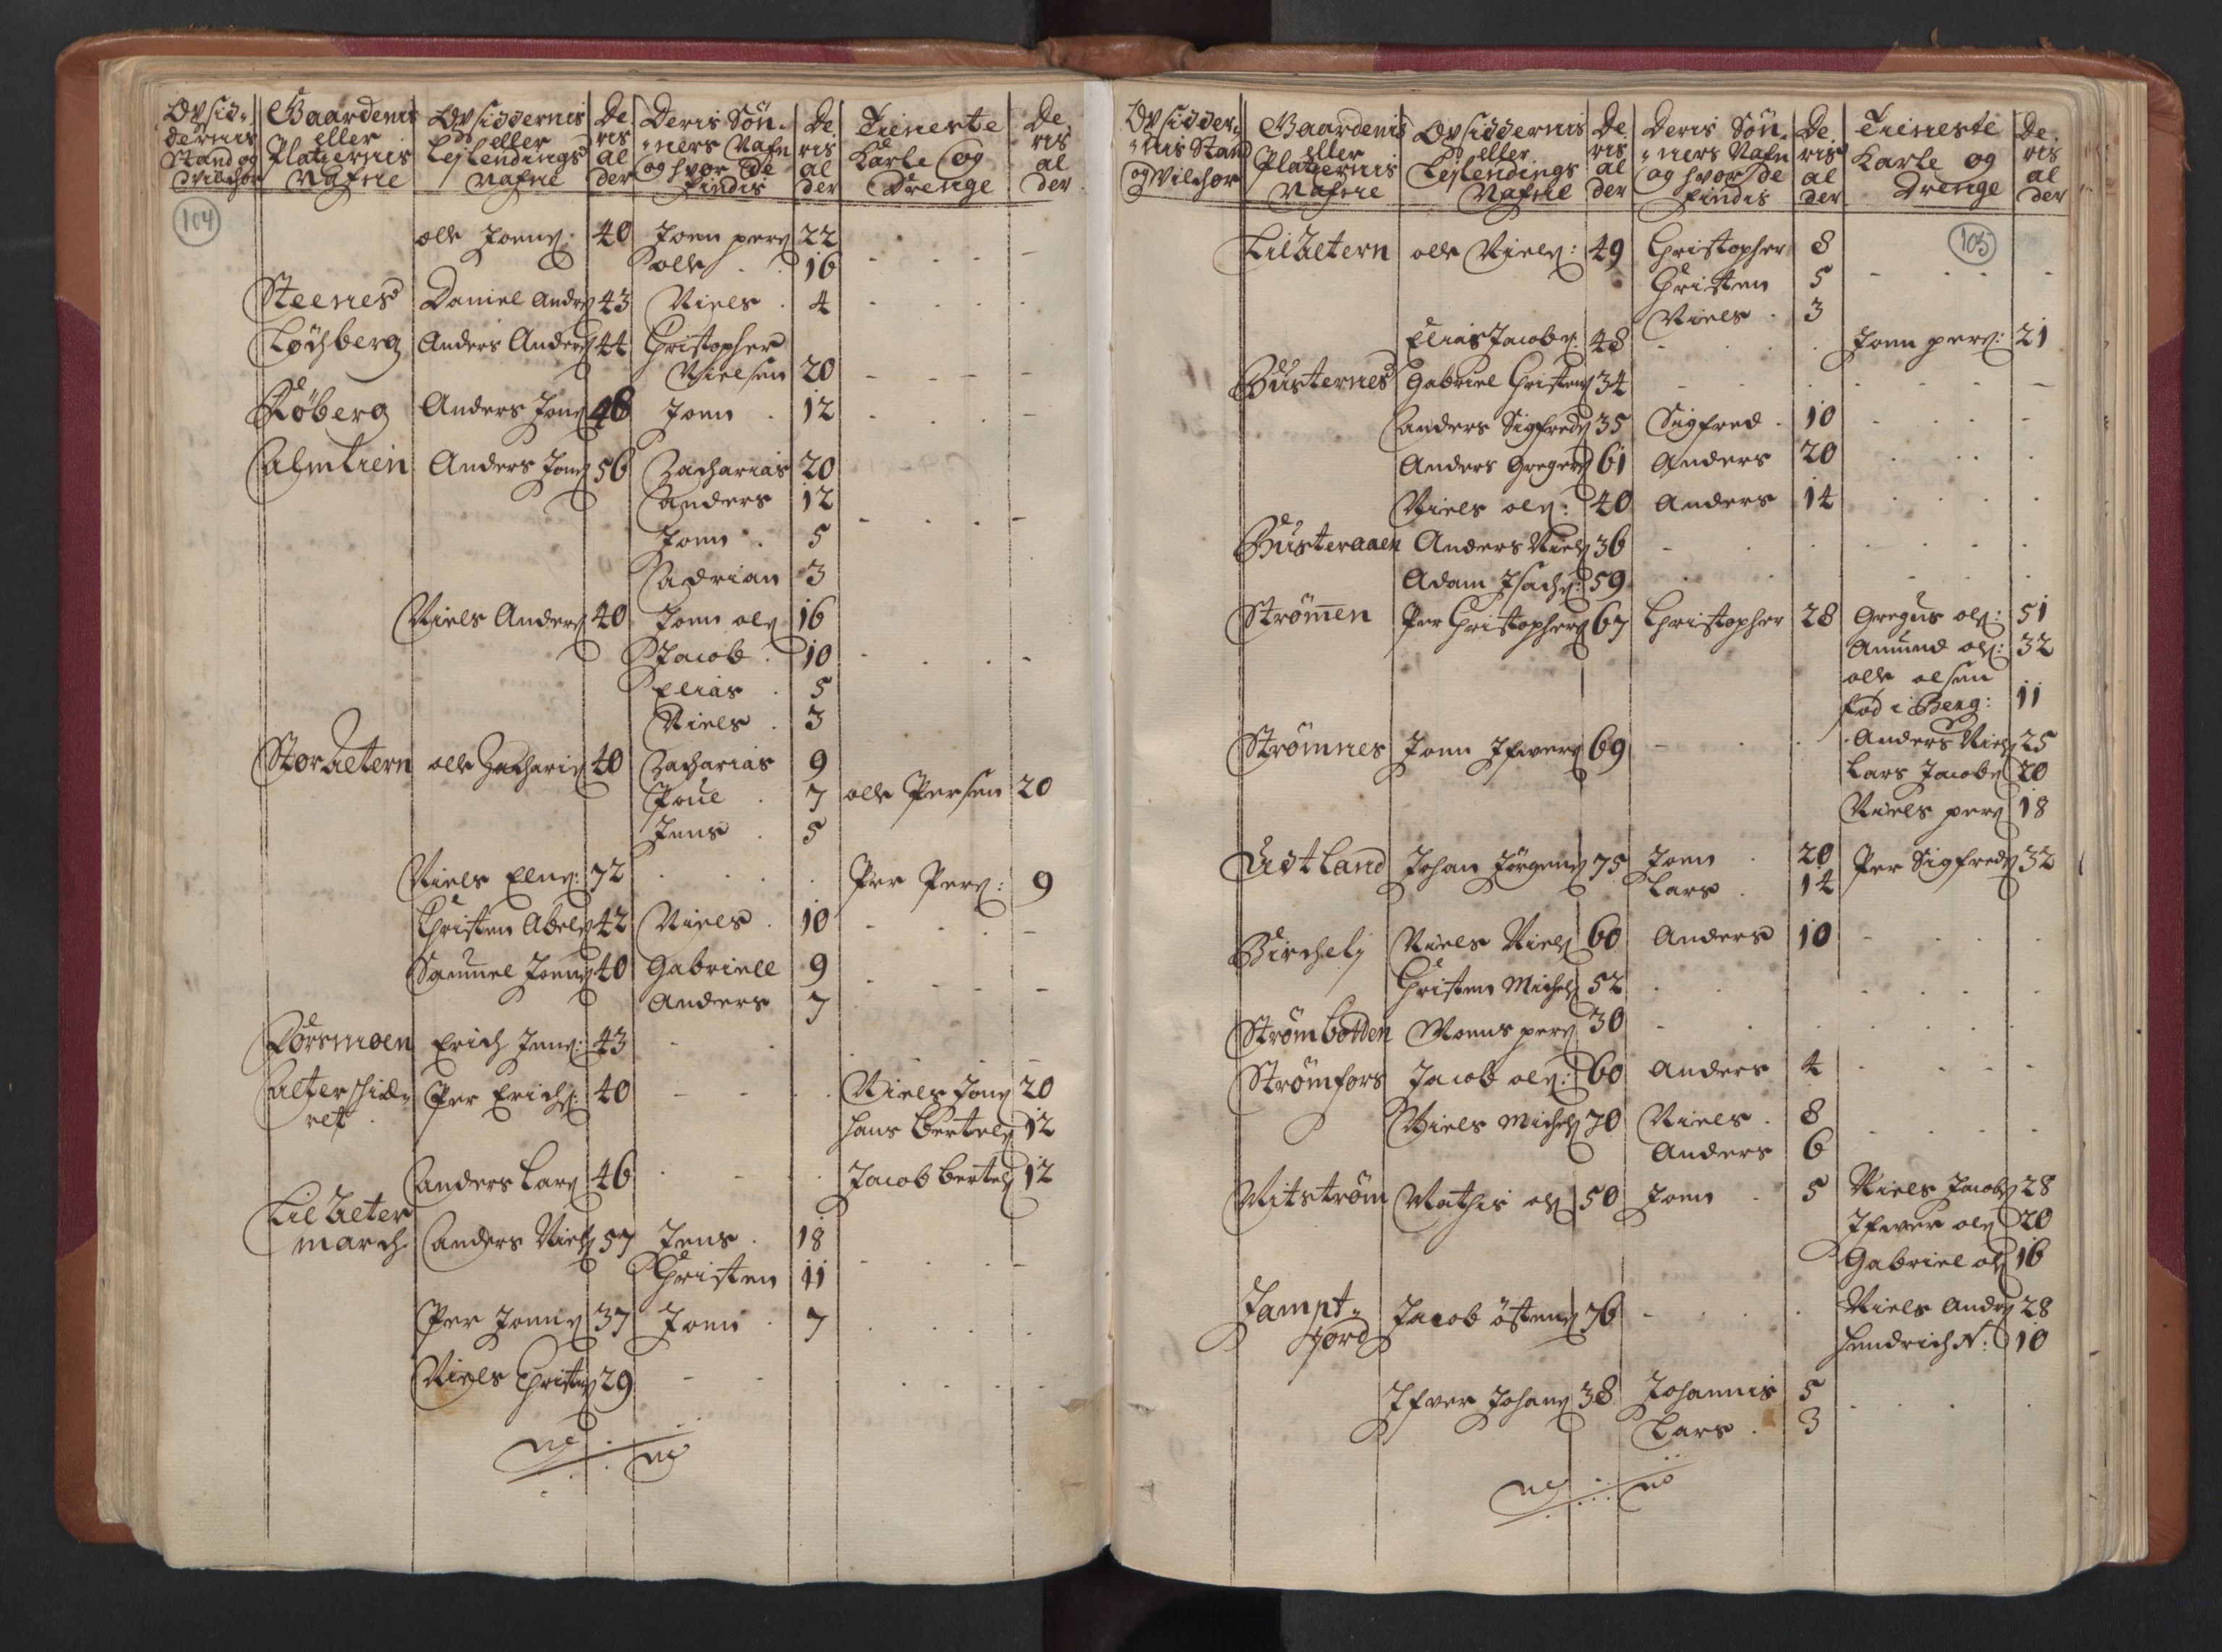 Opsid-
dernis
Stand og
Vilchor
Gaardenis
eller
Platzernis
Nafne
Opsiddernis
eller
Lejlendings
Nafne
De
ris
al
der
Deris Søn-
ners Nafn
og hvor de
findis
De
ris
al
der
Tieneste
Karle og
Drenge
De
ris
al
der
104
olle Joenß: 40 Joen perß 22
olle 16
Steenes Daniel Andrß 43 Niels 4
Løchberg Anders Anderß 44 Christopher
Nielsen 20
Røberg Anders Jonß 48 Joen 12
Almlien Anders Jonß 56 Zacharias 20
Anders 12
Joen 5
Adrian 3
Niels Anderß 40 Joen olß 16
Jacob 10
Elias 5
Niels 3
Storaltern olle Zachariß 40 Zacharias 9
Poul 7 olle Persen 20
Jens 5
Niels Elnß: 72 Per Perß: 9
Christen Abelß 42 Niels 10
Samuel Joenß 40 Gabriell 9
Anders 7
Forsmoen Erich Jenß: 43
Alterschid- Per Erichß: 40 Niels Jonß 20
ret Hans Bertelß 12
Anders Larß 46 Jacob Bertelß 12
Lilalter
march Anders Nielß 57 Jens 18
Christen 11
Per Jonnß 37 Joen 7
Niels Christenß 29
Opsidder-
nis Stand
og Vilchor
Gaardenis
eller
Platzernis
Nafne
Opsiddernis
eller
Lejlendings
Nafne
De
ris
al
der
Deris Søn-
ners Nafn
og hvor de
findis
De
ris
al
der
Tieneste
Karle og
Drenge
De
ris
al
der
105
Lilaltern olle Nielß: 49 Christopher 8
Christen 5
Niels 3
Elias Jacobß: 48 Joen perß: 21
Busternes Gabriel Christenß 34
Anders Sigfredß 35 Sigfred 10
Anders Gregerß 61 Anders 20
Niels olß: 40 Anders 14
Busteraaen Anders Nielß 36
Adam Isachß: 59
Strømen Per Christopherß 67 Christopher 28 Gregus olß: 51
Amund olß: 32
olle olsen
fød i Berg: 11
Strømnes Joen Ifwerß 69 Anders Nielß 25
Lars Jacobß 20
Niels perß 18
Udtland Johan Jørgenß 75 Joen 20 Per Sigfredß 32
Lars 14
Birchelj Niels Nielß 60 Anders 10
Christen Michelß 52
Strømbotten Moens perß 30
Strømfors Jacob olß: 60 Anders 4
Niels Michelß 70 Niels 8
Anders 6
Nitstrøm Mathis olß 50 Joen 5 Niels Jacobß 28
Ifwer olß 20
Gabriel olß 16
Jampt- Jacob östenß 76 Niels Andrß 28
jord Hendrich N: 10
Ifver Johanß 38 Johannis 5
Lars 3